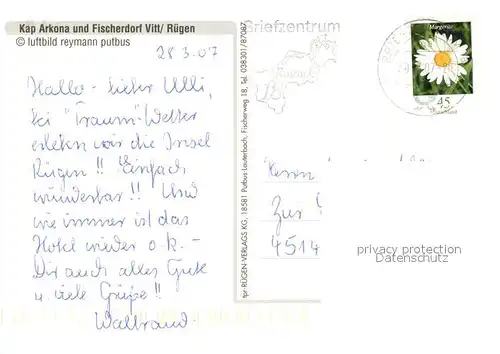 Kap Arkona und Fischerdorf Vitt/ Rügen
© luftbild reymann putbus
28.3.07
Hallo - lieber Ulli,
bei "Traum"-Wetter
erleben wir die Insel
Rügen!! Einfach
wunderbar!! Und
wie immer ist das
Hotel wieder o.k. -
Dir auch alles Gute
u. viele Grüße!!
Waltraud
tpr RÜGEN-VERLAGS KG, 18581 Putbus-Lauterbach, Fischerweg 18, Tel. 038301/87087
Briefzentrum
Rügen
Margerite
45
Herrn
Zur
4514
privacy protection
Datenschutz